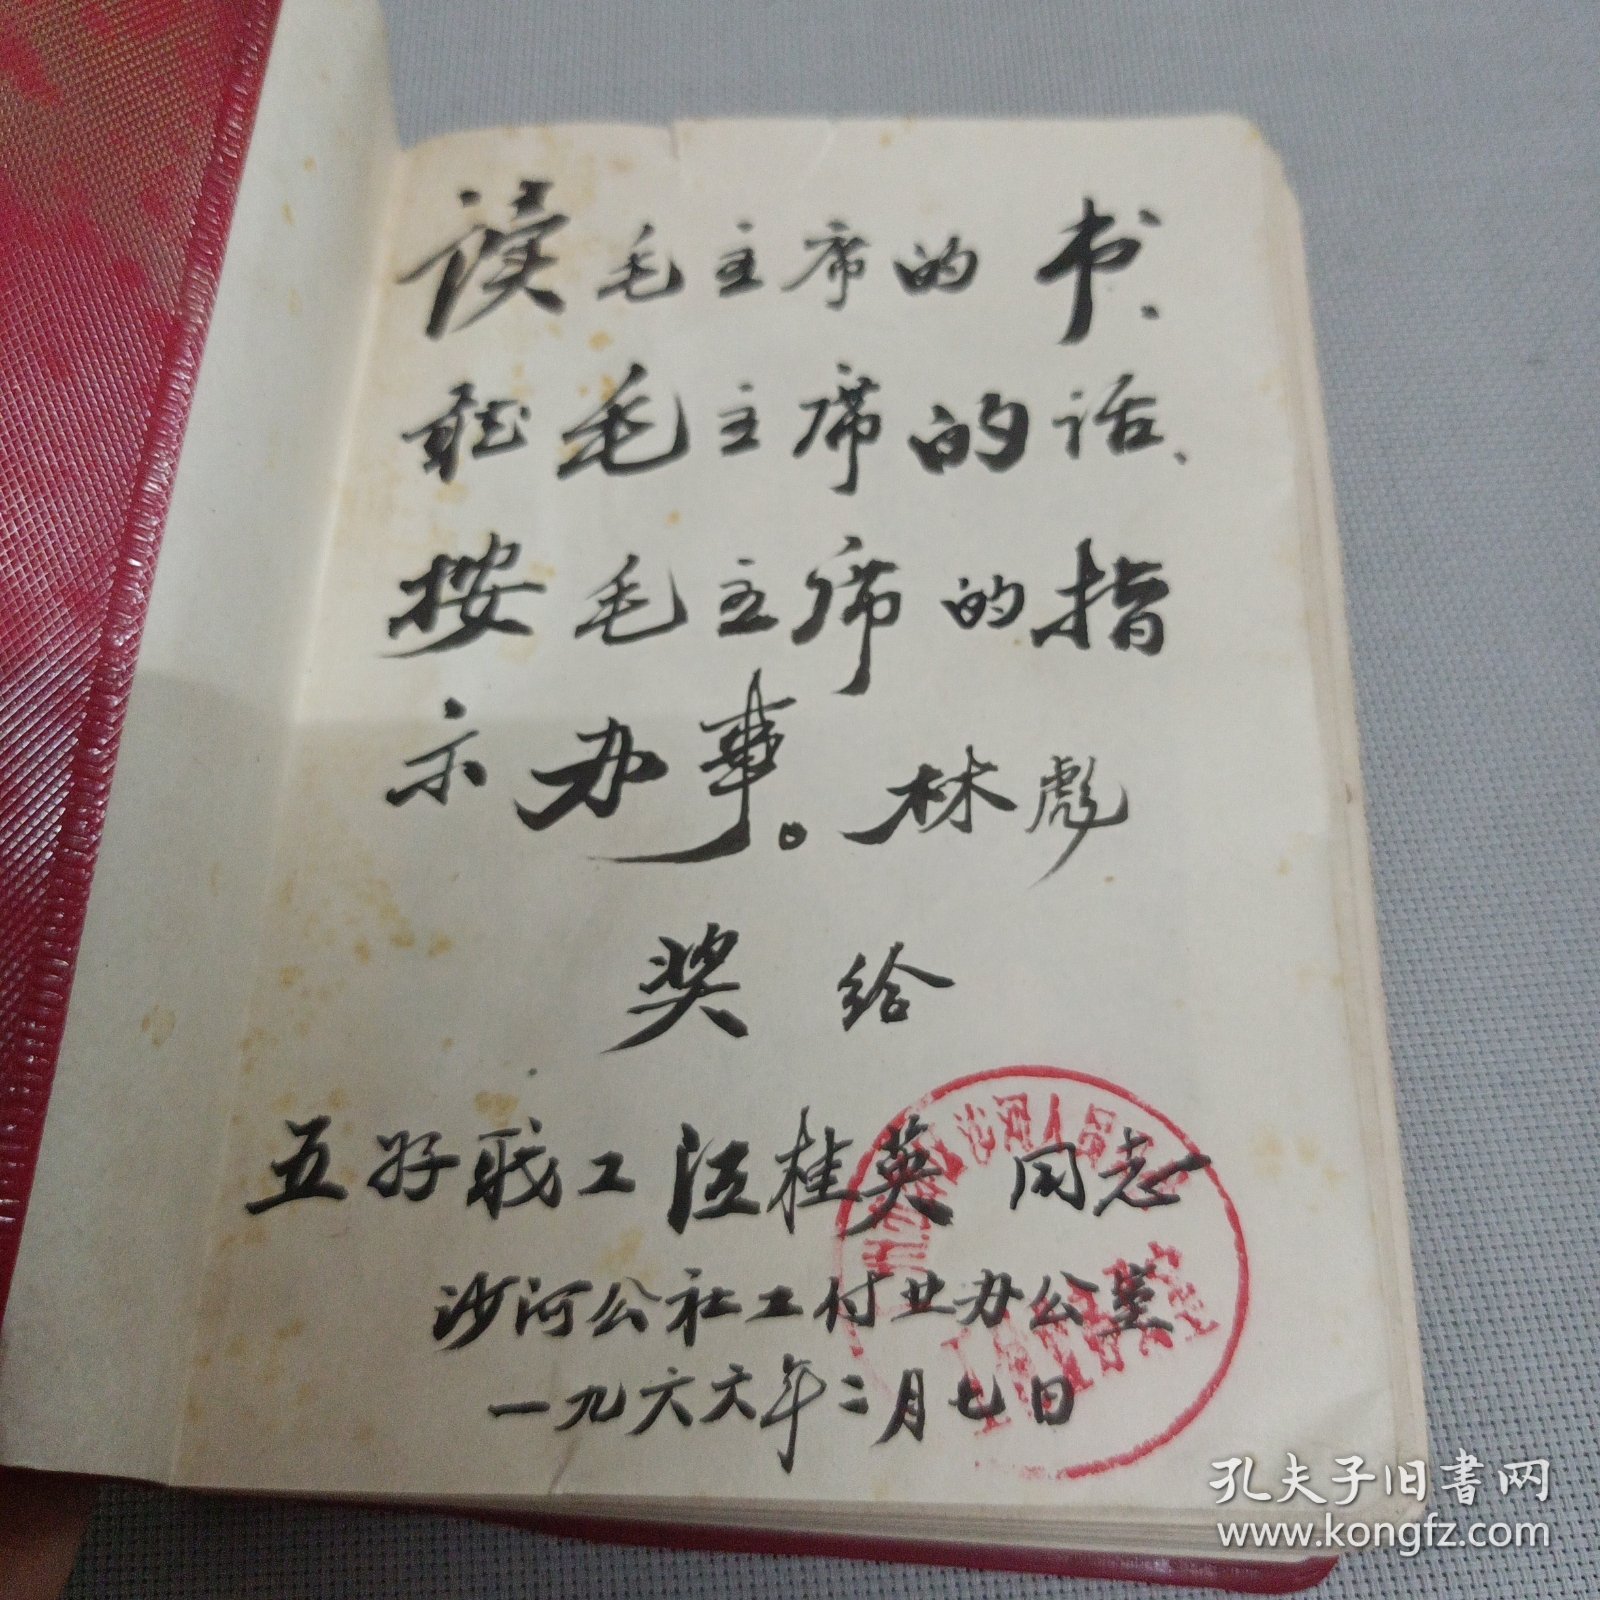 读毛主席的书、
听毛主席的话、
按毛主席的指
示办事。林彪
奖给
五好职工汪桂英同志
沙河公社工付业办公室
一九六六年二月七日
孔夫子旧书网
www.kongfz.com